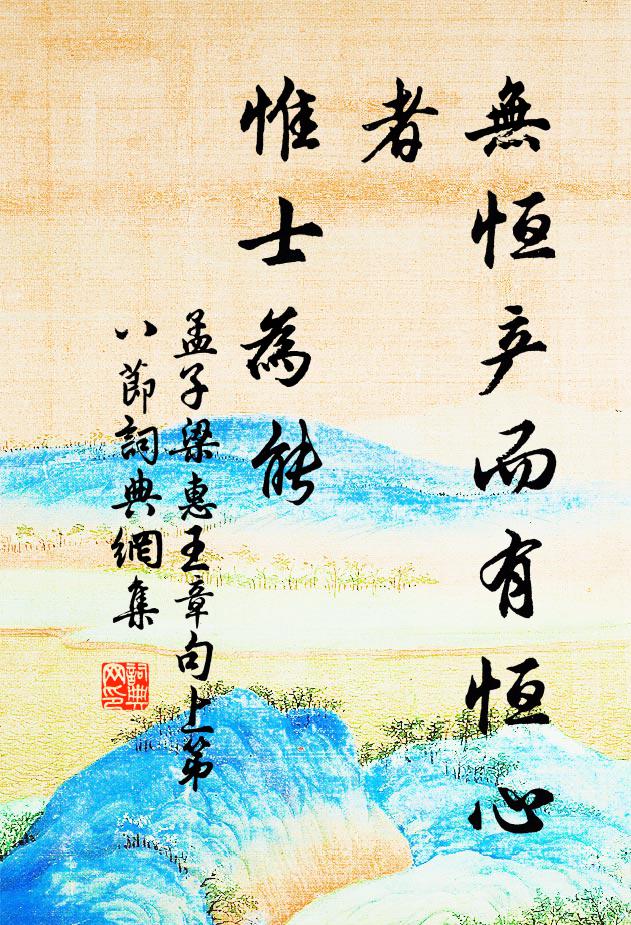 無恒产而有恒心
者
惟士為能
孟子梁惠王章句上第
八節詞典網集
詞典
网印